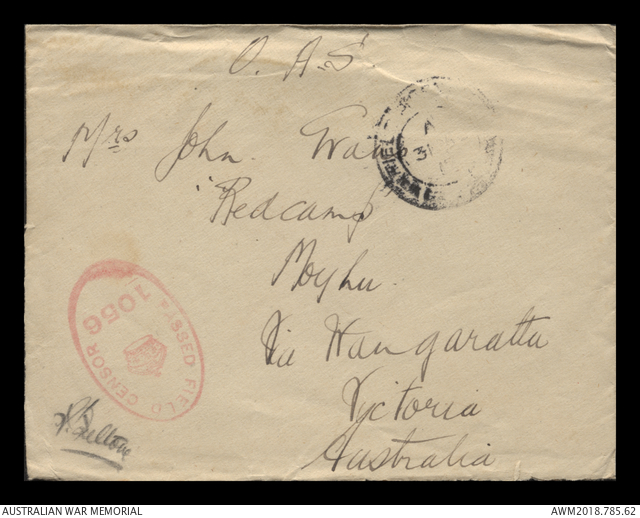 O. A. S.
Mrs John
"Redcamp"
Moyhu.
Via Wangaratta
Victoria
Australia
PASSED FIELD CENSOR
1056
AUSTRALIAN WAR MEMORIAL
AWM2018.785.62